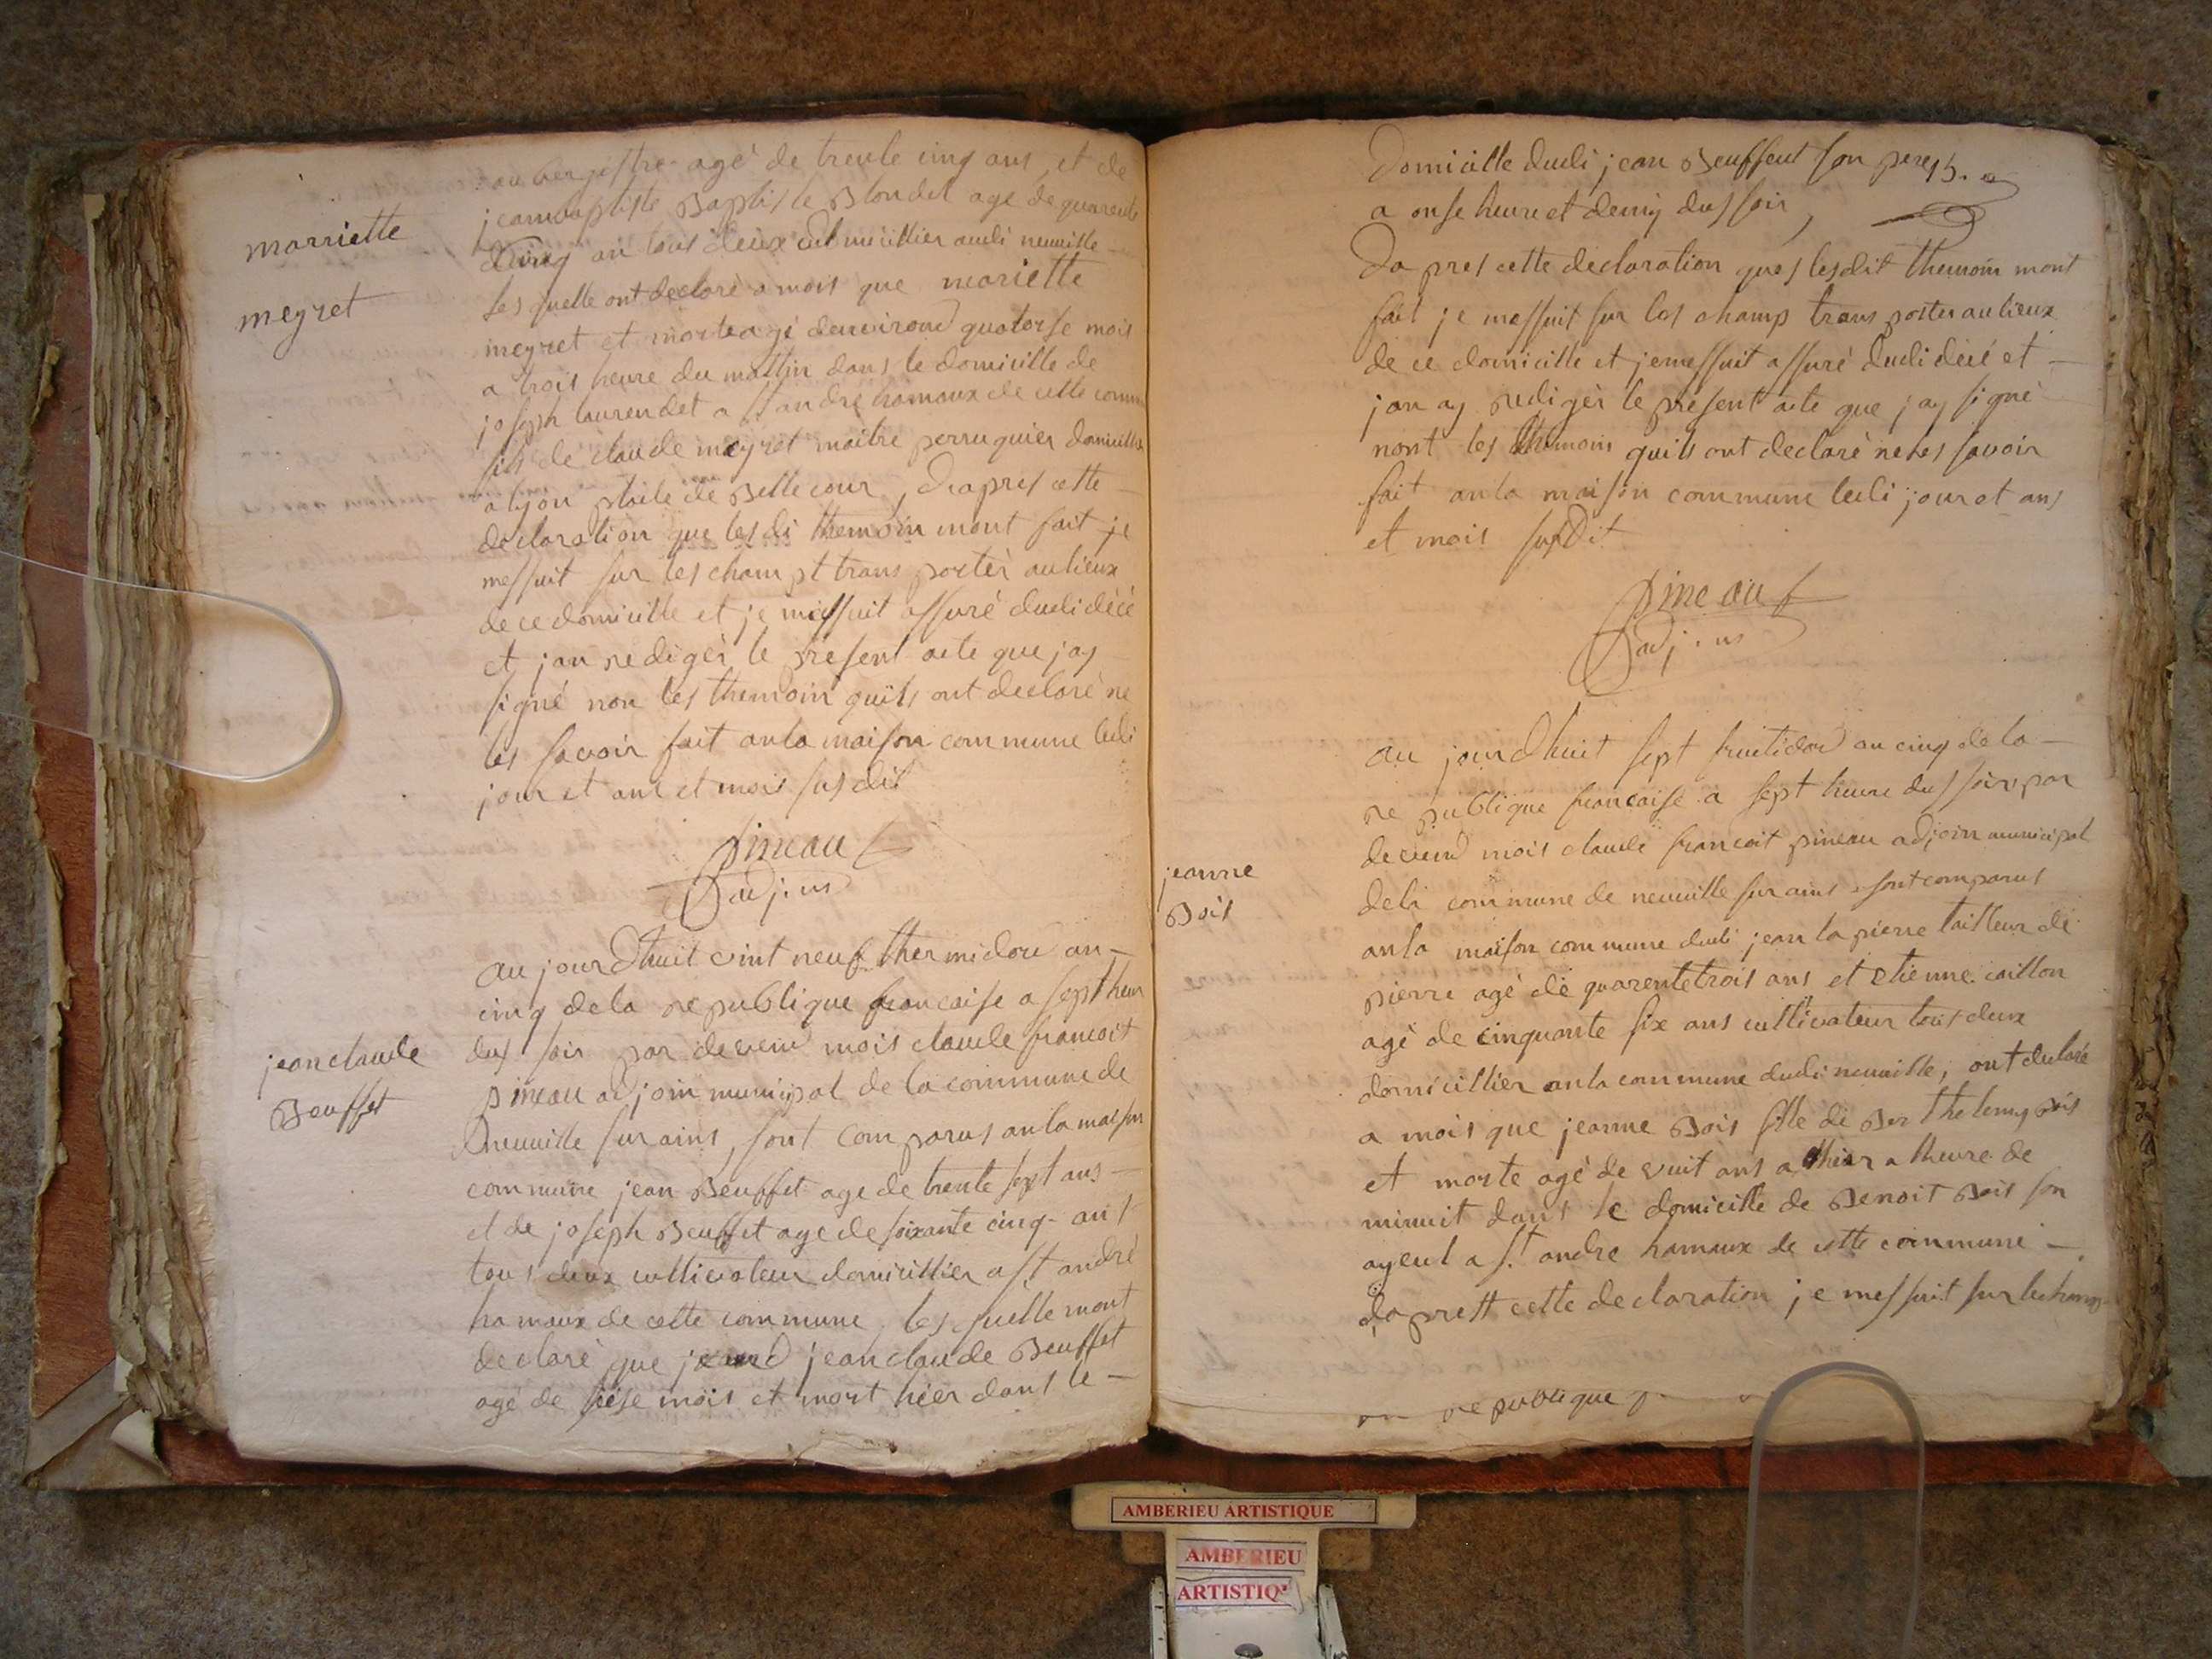 marriette
meyret
aubergistre agé de trente cinq ans, et de
jeambaptiste Baptiste Blondel age de quarente
cinq an tous deux domicillier audi neuville
les quelle ont declaré a mois que mariette
meyret et morte agé denviron quatorse mois
a trois heure du mattin dans le domicille de
joseph laurendet a st andre hamaux de cette comm
fils de claude meyret maitre perruquier domicillie
a lyon place de Belle cour, d'apres cette
declaration que lesdi themoin mont fait je
messuit sur les champt trans portér au lieux
de ce domicille et je messuit assuré dudi décé
et jan rediger le present acte que jay
signé non les themoin quils ont declaré ne
les savoir fait an la maison commune ledi
jour et ans et mois susdit
pineau
adjoin
jean claude
Beuffet
au jourdhuit vint neuf thermidor an
cinq de la republique francaise a sept heur
dus soir par devend mois claude francoit
pineau adjoin municipal de la commune de
neuville sur ains, sont comparus an la maison
commune jean Beuffet age de trente sept ans
et de joseph Beuffet age de soixante cinq ans
tous deux cultivateur domicillier a st andré
hamaux de cette commune les quelle mont
declaré que jean claude Beuffet
agé de seise mois et mort hier dans le
Domicille dudi jean Beuffeut son pere 15.
a onse heure et demij dus soir,
Da pres cette declaration ques lesdit themoin mont
fait je messuit sur les champ trans porter au lieux
de ce domicille et je messuit assuré dudi décé et
jan ay rediger le present acte que jay signé
nont les themoin quils ont declaré ne les savoir
fait an la maison commune ledi jour et ans
et mois susdit
pineau
adjoin
jeanne
Bois
au jourdhuit sept fructidor an cinq de la
republique francaise a sept heure dus soir par
devend mois claude francoit pineau adjoin municipal
de la commune de neuville sur ains sont comparus
an la maison commune dudi jean la pierre tailleur de
pierre agé de quarente trois ans et etienne caillon
agé de cinquante six ans cultivateur tous deux
domicillier an la commune dudi neuville, ont declaré
a mois que jeanne Bois fille de Berthelemy Bois
et morte agé de vuit ans a thier a lheure de
minuit dans le domicille de Benoit Bois son
ayeul a st andre hamaux de cette commune
daprest cette declaration je messuit sur le champ
republique
AMBERIEU ARTISTIQUE
AMBERIEU
ARTISTIQ